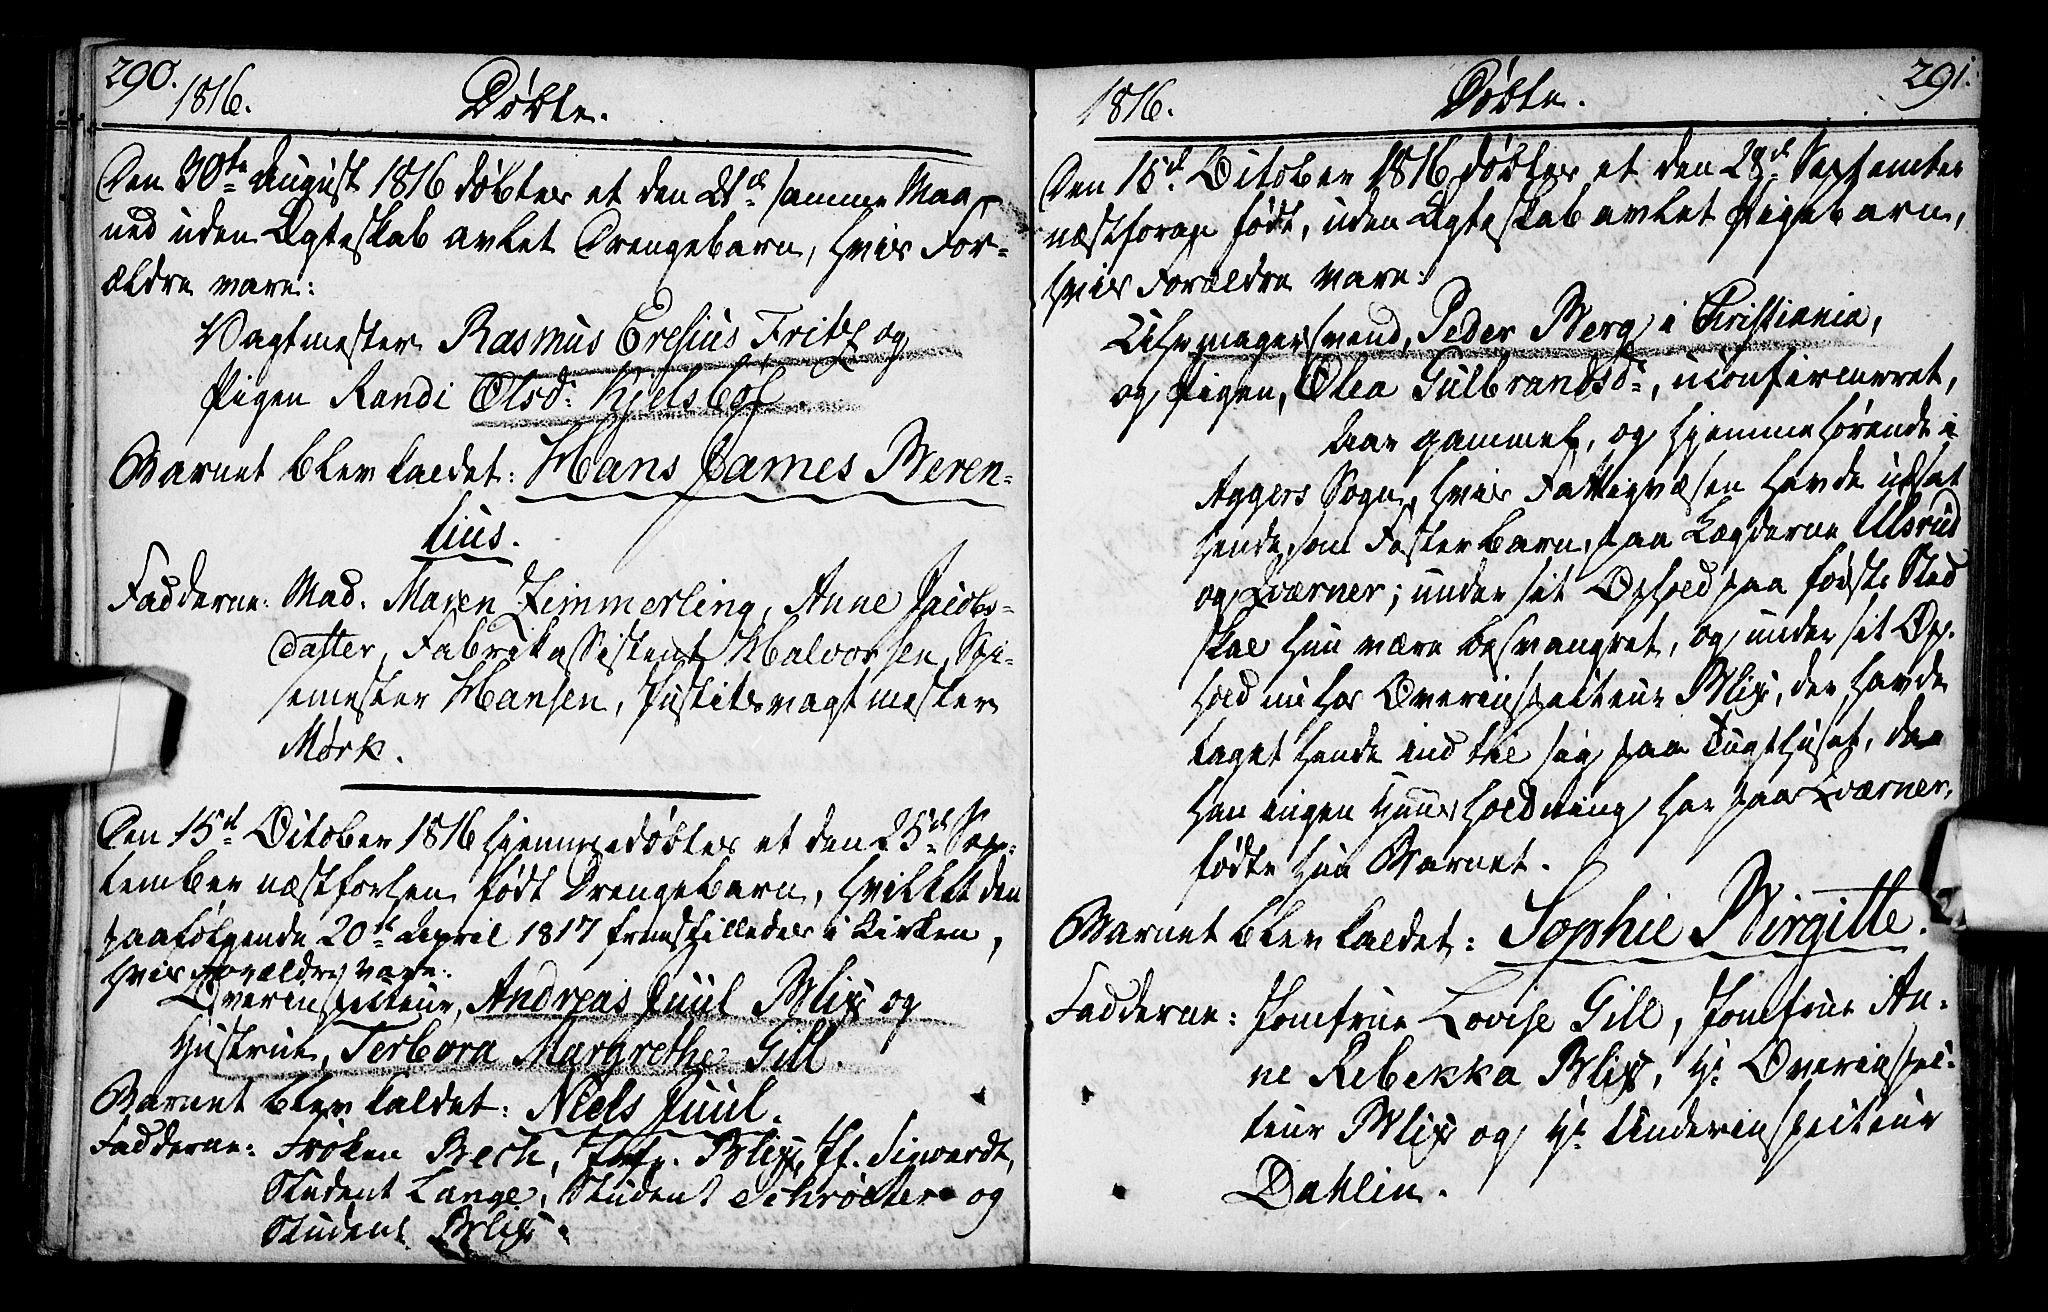 290.
1816.
Døbte.
Den 30te August 1816 døbtes et den 21de samme Maa-
ned uden Ægteskab avlet Drengebarn, hvis For-
ældre vare:
Vagtmester Rasmus Eresius Fritz og
Pigen Randi Olsd: Kjelsbøf.
Barnet blev kaldet: Hans James Beren-
tius.
Fadderne: Mad. Maren Zimmerling, Anne Jacobs-
datter, Fabrikassistent Halvorsen, Spi-
semester Hansen, Justitsvagtmester
Mørk.
Den 15d October 1816 hjemmedøbtes et den 25de Sep-
tember næstforhen født Drengebarn, hvilket den
paafølgende 20de April 1817 fremstilledes i Kirken,
hvis Forældre vare:
Overinspecteur, Andreas Juul Blix og
Hustrue, Terbora Margrethe Gill.
Barnet blev kaldet: Niels Juul.
Fadderne: Frøken Bech, Jfr. Blix, Hr. Siwerdt,
Student Lange, Student Schrøeter og
Student Blix.
1816.
Døbte.
291.
Den 15d. October 1816 døbtes et den 28d. September
næstforan født, uden Ægteskab avlet Pigebarn,
hvis Forældre vare:
Uhrmagersvend, Peder Berg i Christiania,
og Pigen, Olea Gulbrandsd:, uconfirmeret,
Aar gammel, og hjemmehørende i
Aggers Sogn, hvis Fattigvæsen havde udsat
hende som Fosterbarn, paa Lægderne Ulsrud
og Qværner; under sit Ophold paa første Sted
skal hun være besvangret, og under sit Op-
hold nu hos Overinspecteur Blix, der havde
taget hende ind til sig paa Tugthuset, da
han ingen Huusholdning har paa Qværner,
fødte hun Barnet.
Barnet blev kaldet: Sophie Birgitte.
Fadderne: Jomfrue Lovise Gill, Jomfrue An-
ne Rebekka Blix, Hr. Overinspec-
teur Blix og Hr. Underinspecteur
Dahlin.